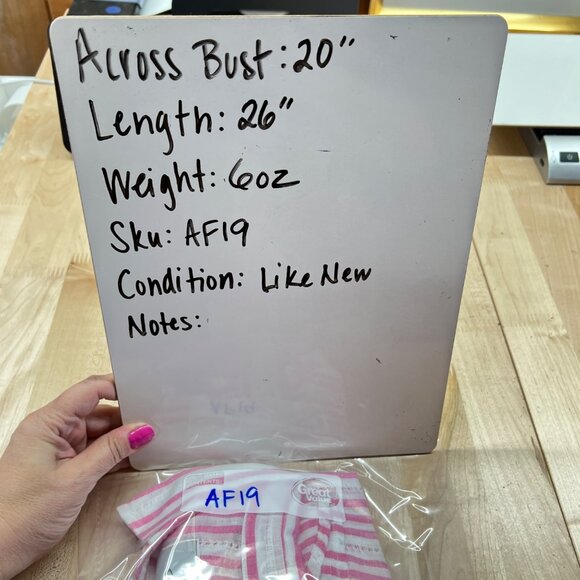 Across Bust: 20"
Length: 26"
Weight: 6oz
Sku: AF19
Condition: Like New
Notes:
AF19
Great
Value